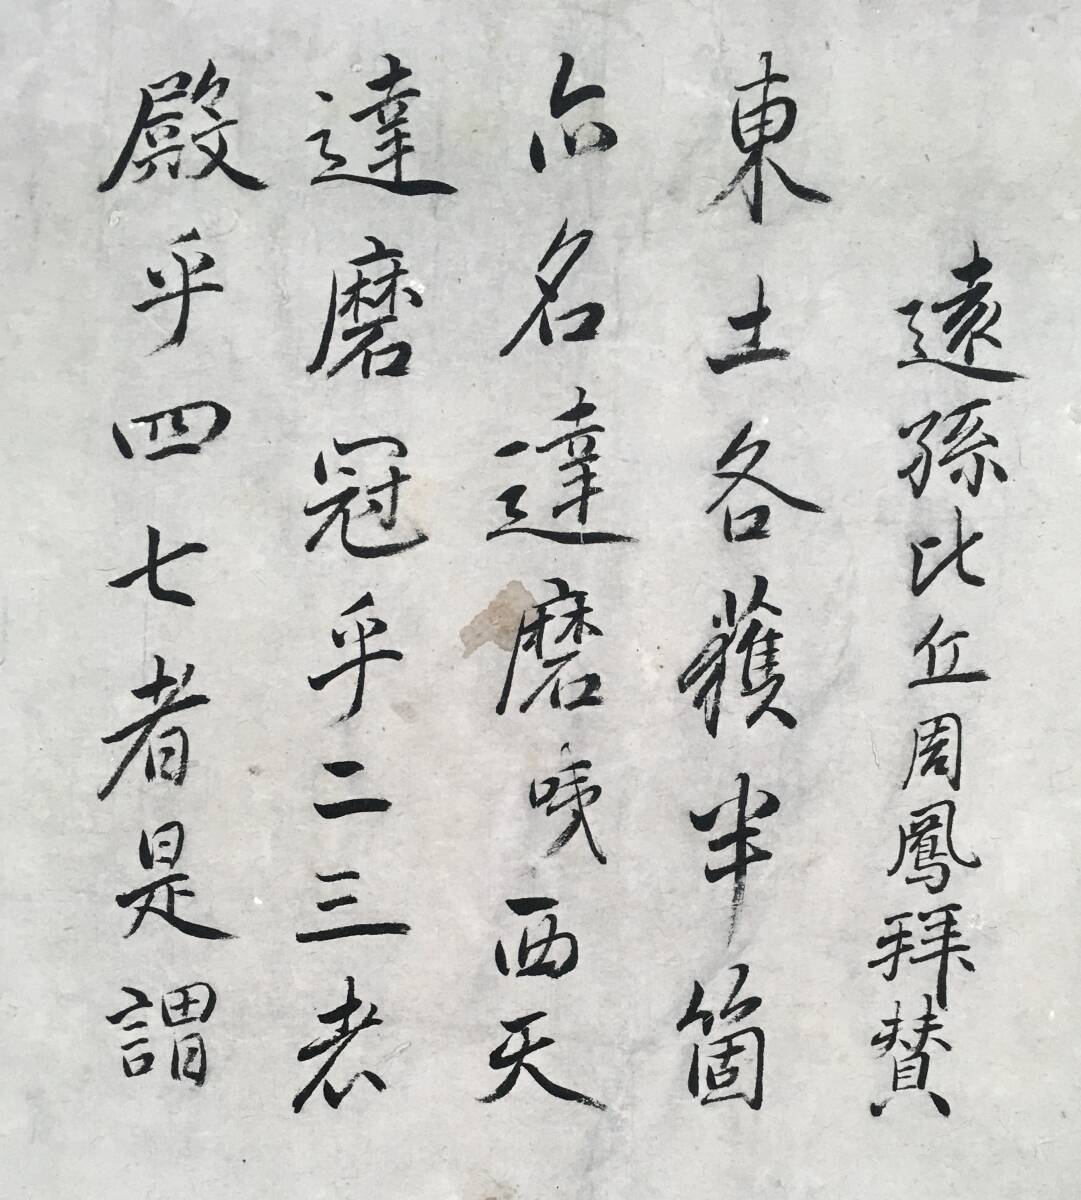 殿乎四七者是謂
達磨冠乎二三者
亦名達磨咦西天
東土各獲半箇
遠孫比丘周鳳拜賛